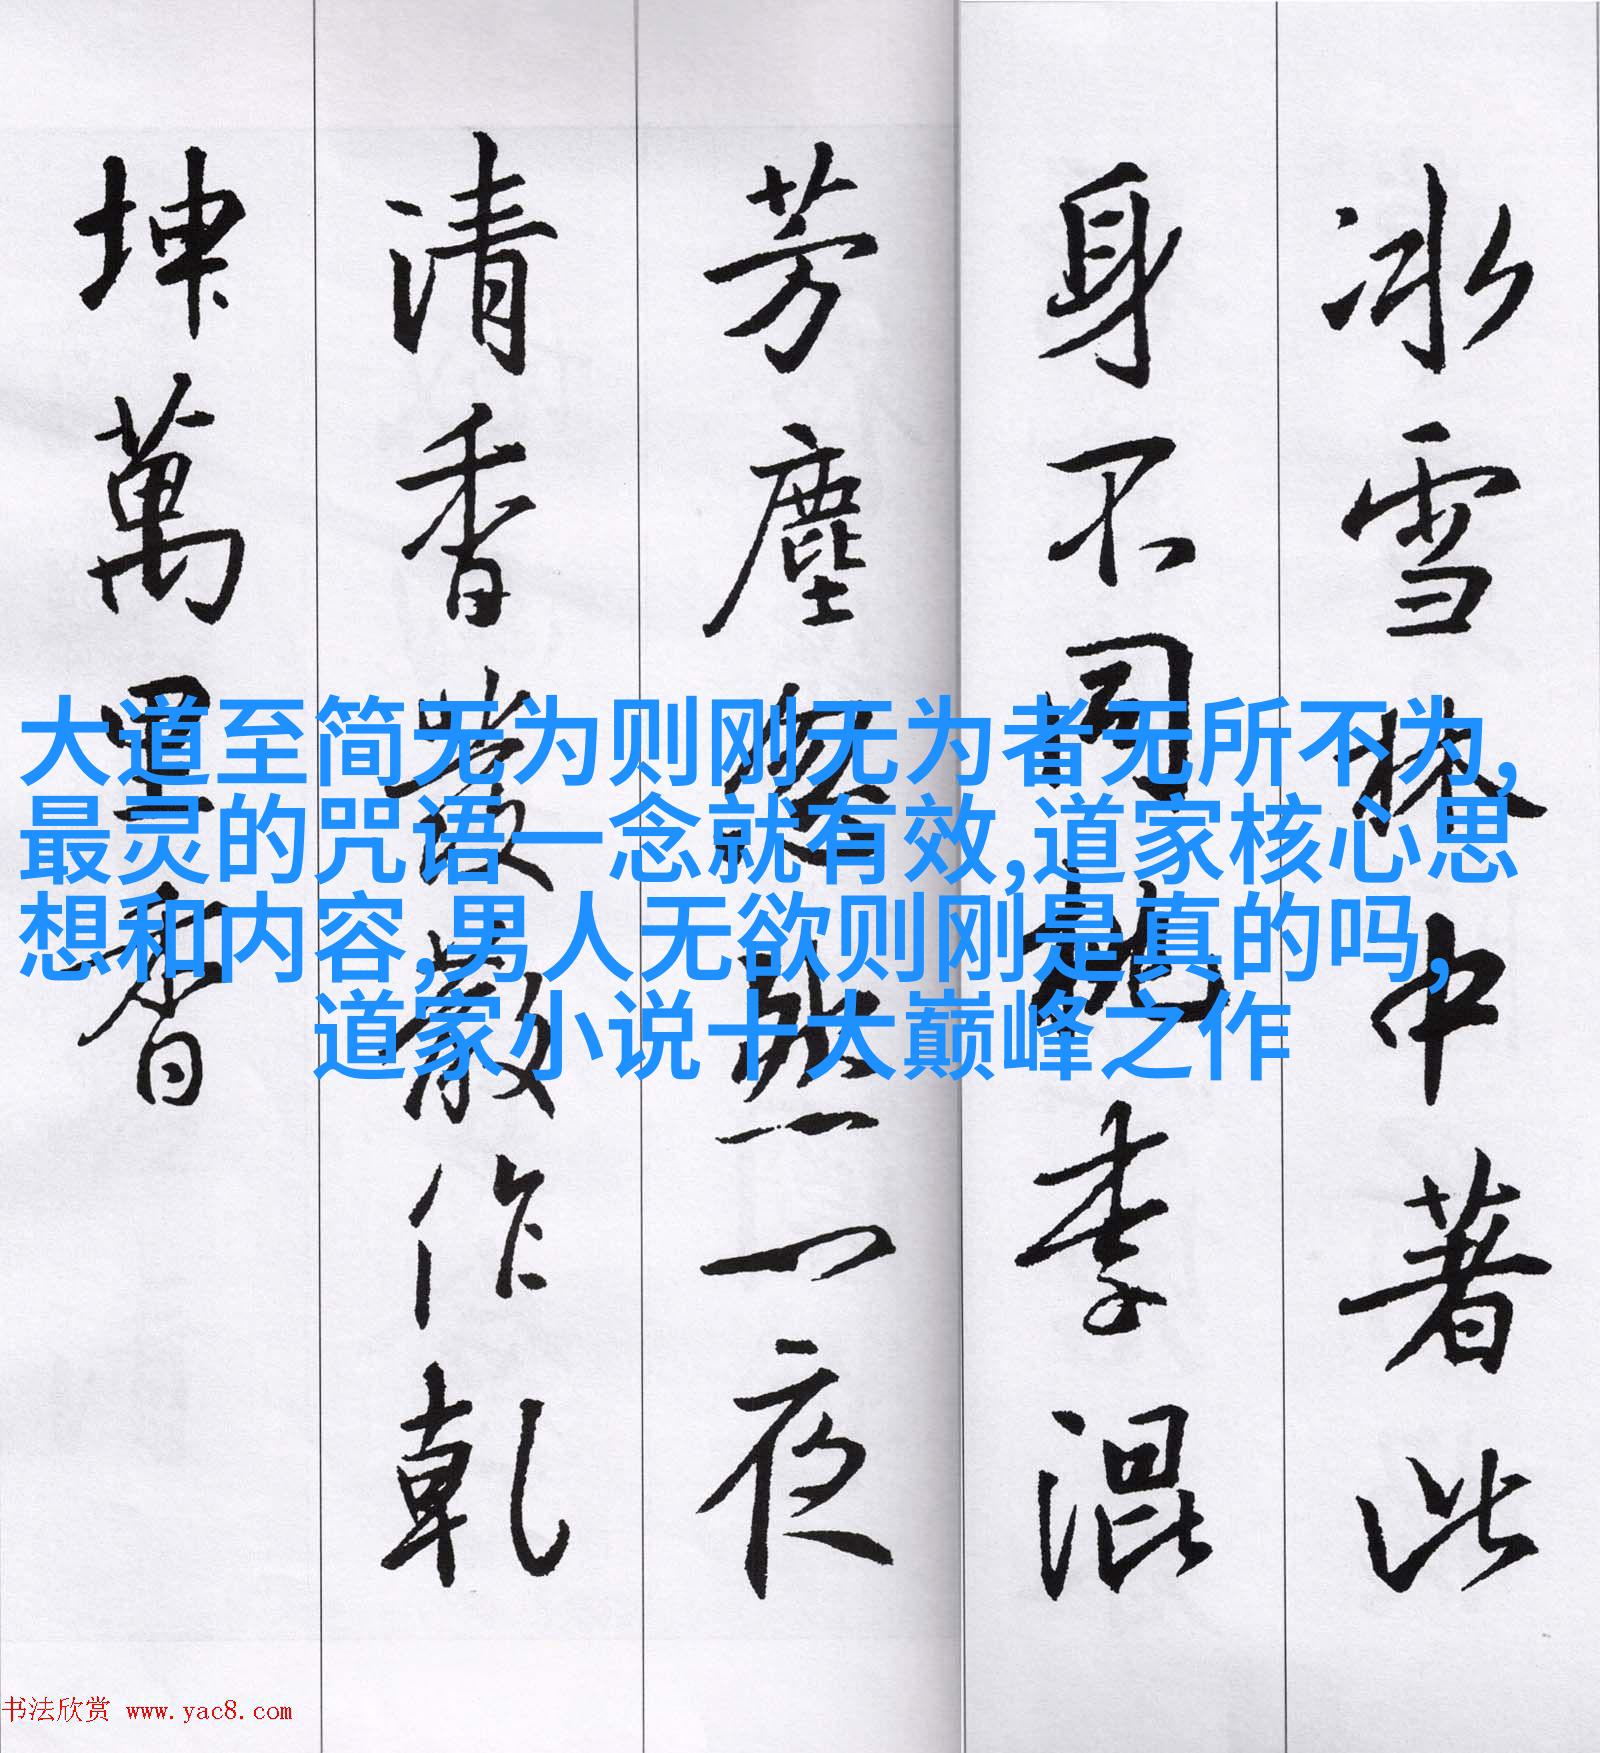 冰雪林中著此
身不同桃李混
芳塵忽然一夜
清香發散作乾
坤萬里春
大道至简无为则刚无为者无所不为,
最灵的咒语一念就有效,道家核心思
想和内容,男人无欲则刚是真的吗,
道家小说十大巅峰之作
书法欣赏 www.yac8.com